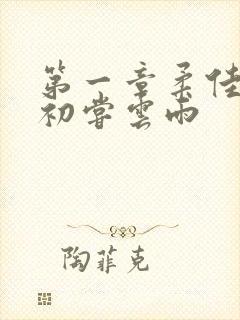 第一章柔佳
初嘗雲雨
陶菲克